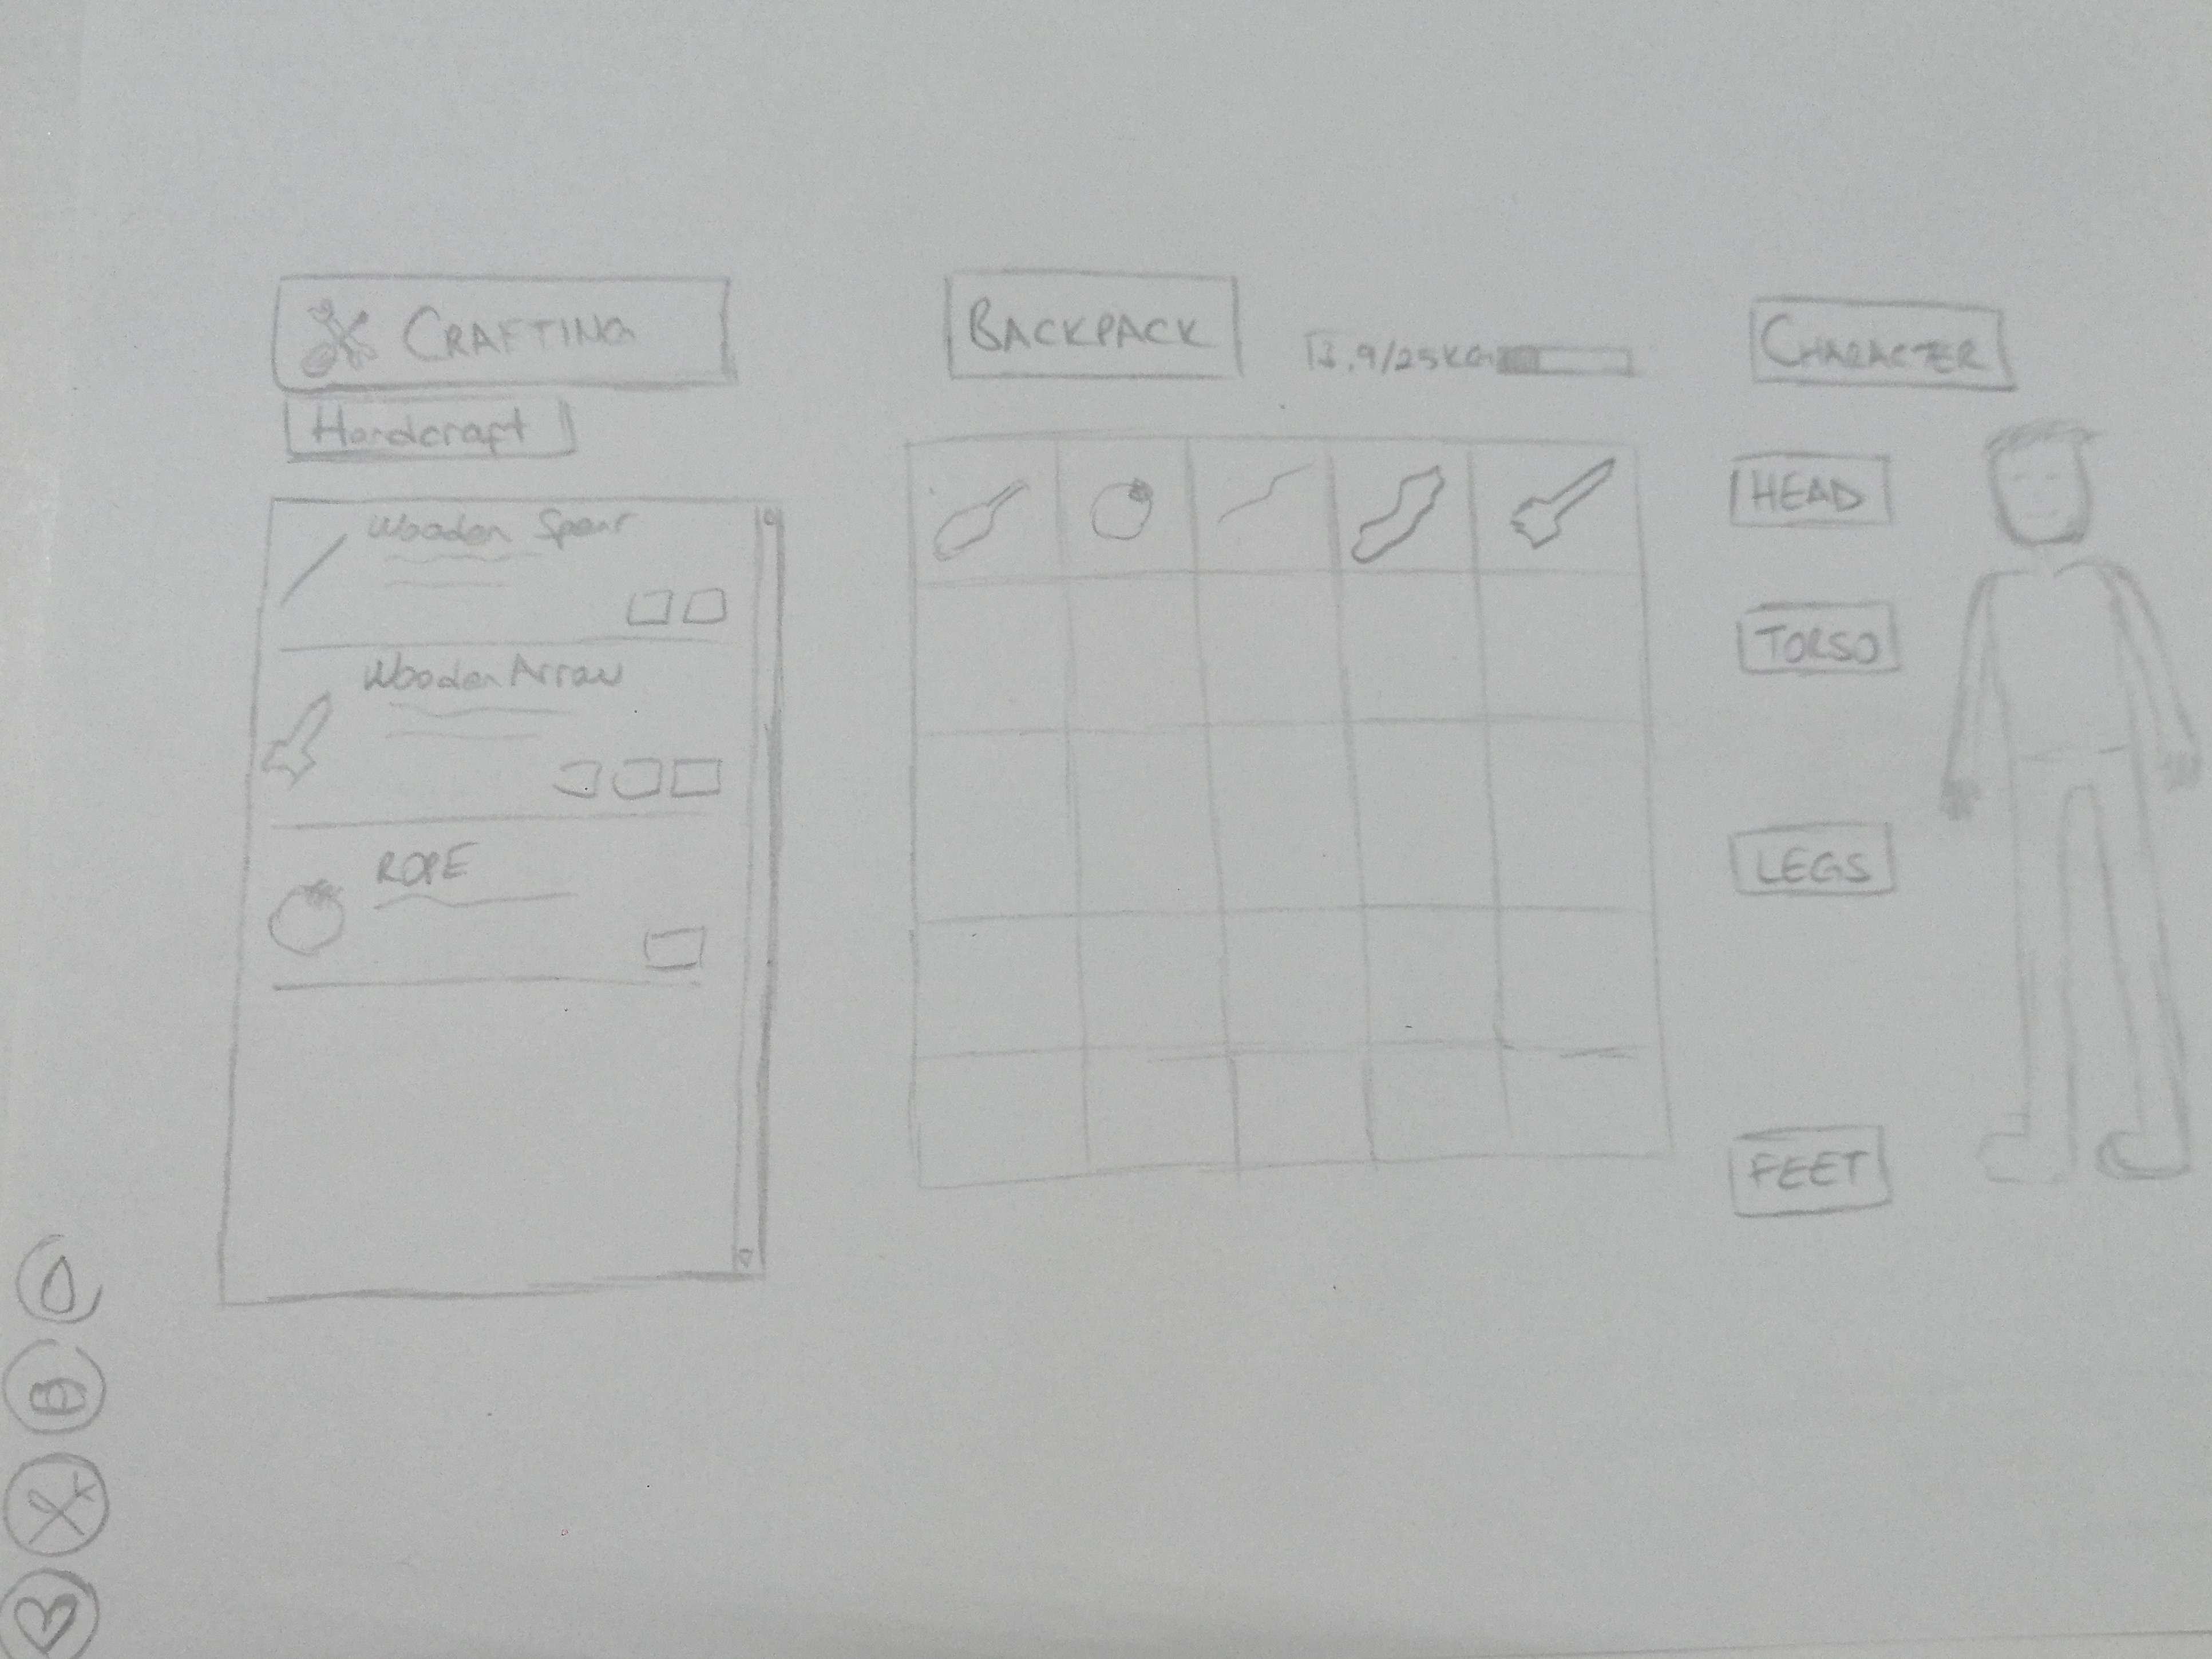 CRAFTING
Handcraft
Wooden Spear
Wooden Arrow
ROPE
BACKPACK
/25KG
CHARACTER
HEAD
TORSO
LEGS
FEET